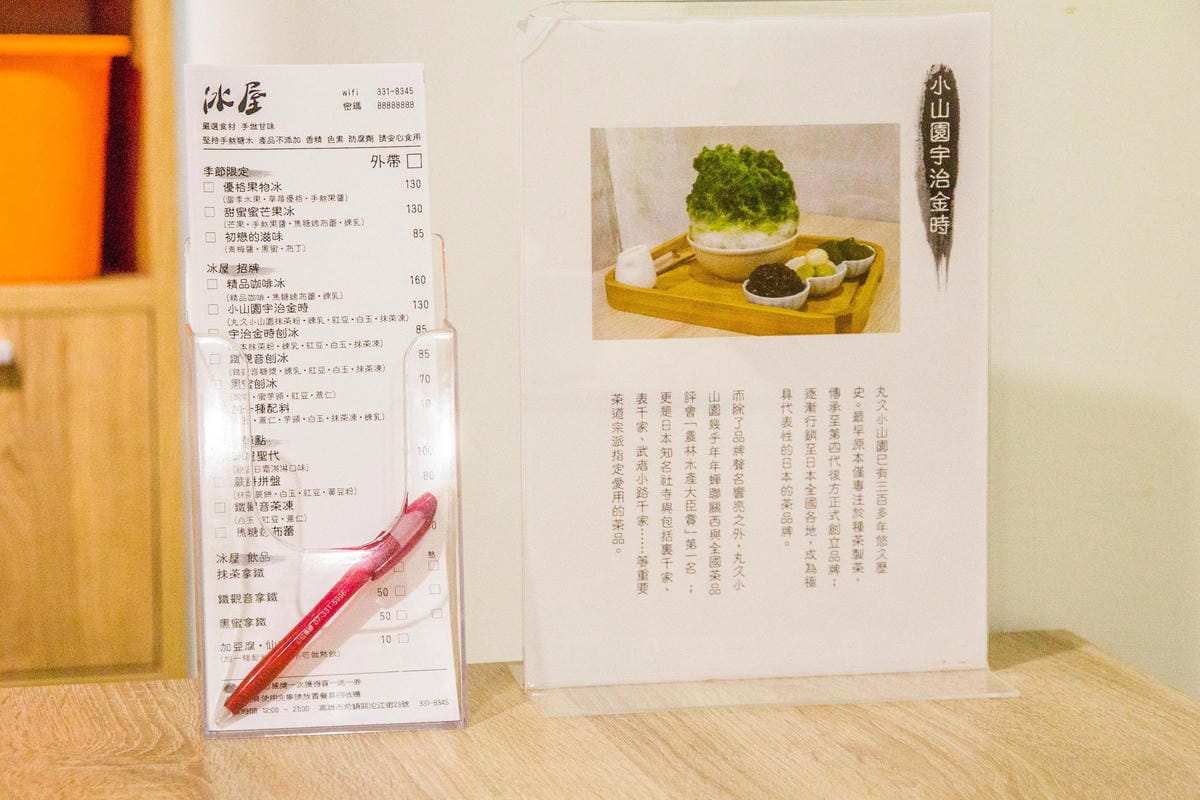 冰屋
wifi 331-8345
密碼 88888888
嚴選食材 手做甘味
堅持手熬糖水 產品不添加 香精 色素 防腐劑 請安心食用
外帶
季節限定
優格果物冰 130
(當季水果・草莓優格・手熬果醬)
甜蜜蜜芒果冰 130
(芒果・手熬果醬・焦糖烤布蕾・煉乳)
初戀的滋味 85
(青梅醬・黑蜜・布丁)
冰屋 招牌
精品咖啡冰 160
(精品咖啡・焦糖烤布蕾・煉乳)
小山園宇治金時 130
(丸久小山園抹茶粉・煉乳・紅豆・白玉・抹茶凍)
宇治金時刨冰 85
本抹茶粉・煉乳・紅豆・白玉・抹茶凍)
鐵觀音刨冰 85
(鐵觀音糖漿・煉乳・紅豆・白玉・抹茶凍)
黑蜜刨冰 70
蜜芋頭・紅豆・薏仁)
加一種配料 10
薏仁・芋頭・白玉・抹茶凍・煉乳)
點
聖代 100
霜淇淋口味)
蕨餅拼盤 80
蕨餅・白玉・紅豆・黃豆粉)
鐵觀音茶凍
(白玉・紅豆・薏仁)
焦糖烤布蕾
冰屋 飲品 熱
抹茶拿鐵
鐵觀音拿鐵 50
黑蜜拿鐵 50
加豆腐・仙 10
(加一種配 不可做熱飲)
一次獲得買一送一券
使用完畢請放置餐具回收櫃
時間 12:00 ~ 21:00 高雄市前鎮區沱江街23號 331-8345
07-331-5996
小山園宇治金時
丸久小山園已有三百多年悠久歷
史。最早原本僅專注於種茶製茶,
傳承至第四代後方正式創立品牌;
逐漸行銷至日本全國各地,成為極
具代表性的日本的茶品牌。
而除了品牌聲名響亮之外,丸久小
山園幾乎年年蟬聯關西與全國茶品
評會「農林水產大臣賞」第一名;
更是日本知名社寺與包括裏千家、
表千家、武者小路千家……等重要
茶道宗派指定愛用的茶品。